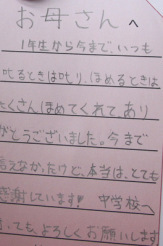 お母さんへ
1年生から今まで、いつも
叱るときは叱り、ほめるときは
たくさんほめてくれてあり
がとうございました。今まで
言えなかったけど、本当は、とても
感謝しています!! 中学校へ
いっても、よろしくお願いします